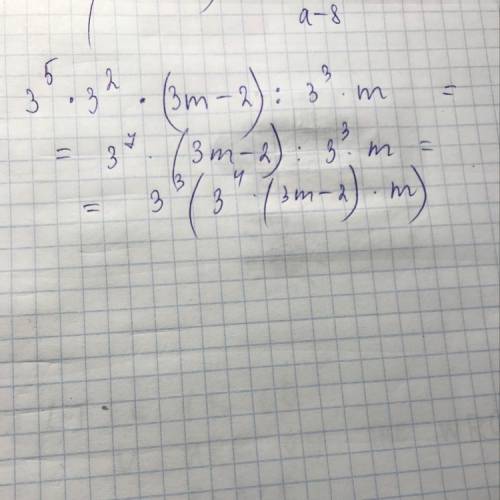 a-8
3⁵ · 3² · (3m-2) : 3³ · m =
= 3⁷ · (3m-2) : 3³ · m =
= 3³ (3⁴ · (3m-2) · m)